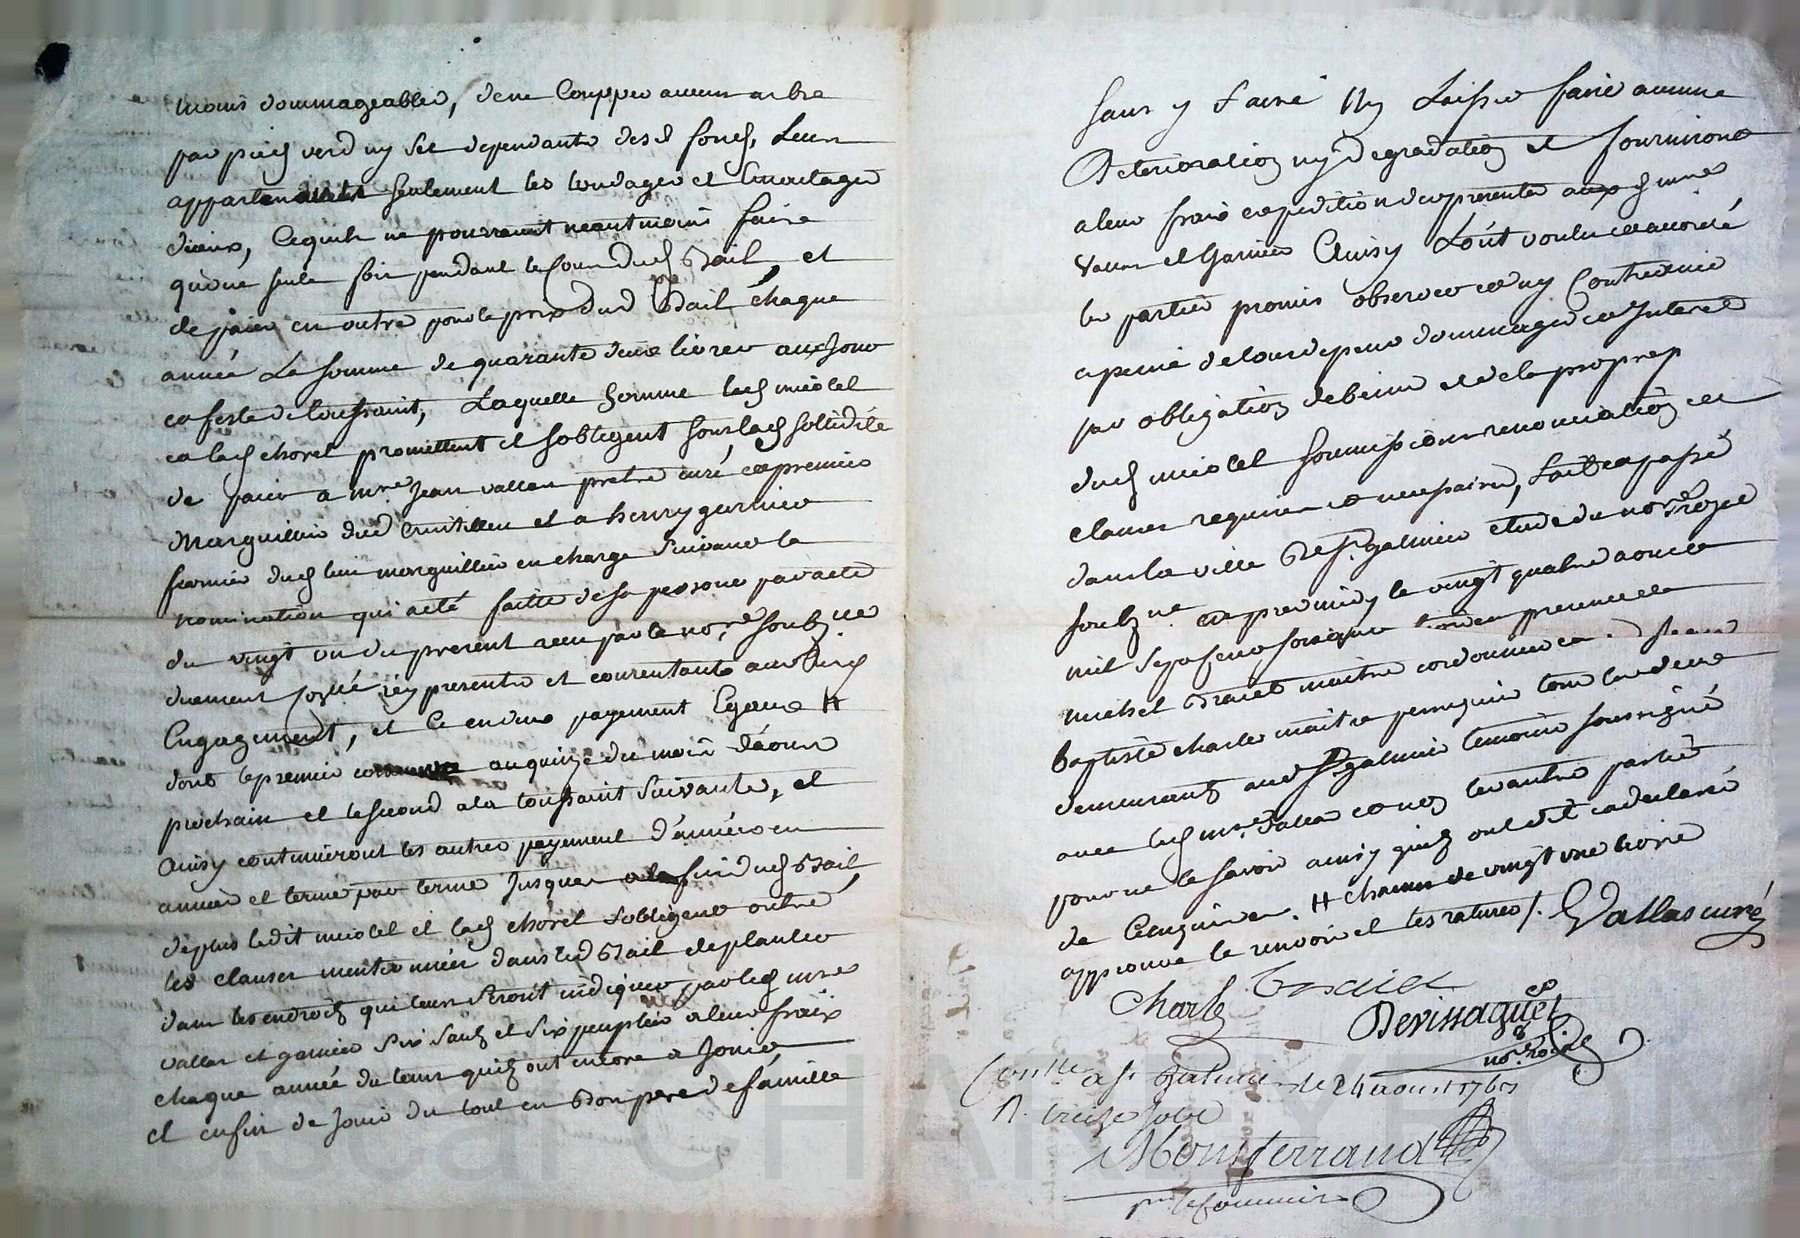 moins dommageables, de ne Coupper aucun arbre
par pied verd ny sec dependants desd fonds, Leur
appartenants seulement les tondages et Emoulages
diceux, Cequils ne pourraint neantmoins faire
quune seule fois pendant le Cour dud Bail, et
de paier en outre pour le prix dud Bail chaque
année La somme de quarante deux livres aux Jour
et feste de toussaint, Laquelle somme led miolel
et lad chorel promettent et sobligent sous lad sollidité
de paier a mre Jean vallas pretre curé et premier
Marguillier dud et a henry garnier
fermier luminier marguillier en charge suivant la
nomination qui a eté faitte de sa personne par acte
du vingt un du present receu par le no.re soubz.né
duement presents et
Engagement, et Ce en deux payement Egaux #
dont le premier au quinze du mois d'aoust
prochain et le second a la toussaint suivante, et
Ainsy continüeront les autres payement d'années en
années et terme par terme Jusques a la fin dud Bail,
deplus ledit miolel et lad chorel sobligent outre
les clauses mentionnées dans led Bail de planter
dans les endroits qui leurs seront indiques par les mre
vallas et garnier six saulx et six peupliers a leur fraix
chaque année du temps quils ont encore a Jouir
et enfin de Jouir du tout en Bon pere de famille
sans y faire Ny Laisser faire aucune
Deterioration ny degradation et fourniront
a leur fraix expedition des presentes aux mre
vallas et Garnier Ainsy Tout voulu et accordé
les parties promis observer et ny Contrevenir
a peine de tous depens dommages et Interets
par obligation de biens et de la propre p
dud miolel soumissions renonciation et
clauses requises et necessaires, fait et passé
dans la ville De st galmier etude du no.re Royal
soubz.né apres midy le vingt quatre aoust
mil sept cent soixante en presence de
michel maitre cordonnier et Jean
baptiste charle maitre peruquier tous deux
demeurants aud St galmier temoins soussigné
avec led mre vallas et non les autres parties
pour ne le savoir ainsy quils ont dit et declaré
de Ce enquis. # chacun de vingt une livre
approuvé le renvoi et les ratures /. Vallas curé
Charle
Devissaguet
no.re Royal
Con.lle a St Galmier le 24 aoust 1767
R. treize sols
Montferrand
pr. le Commis